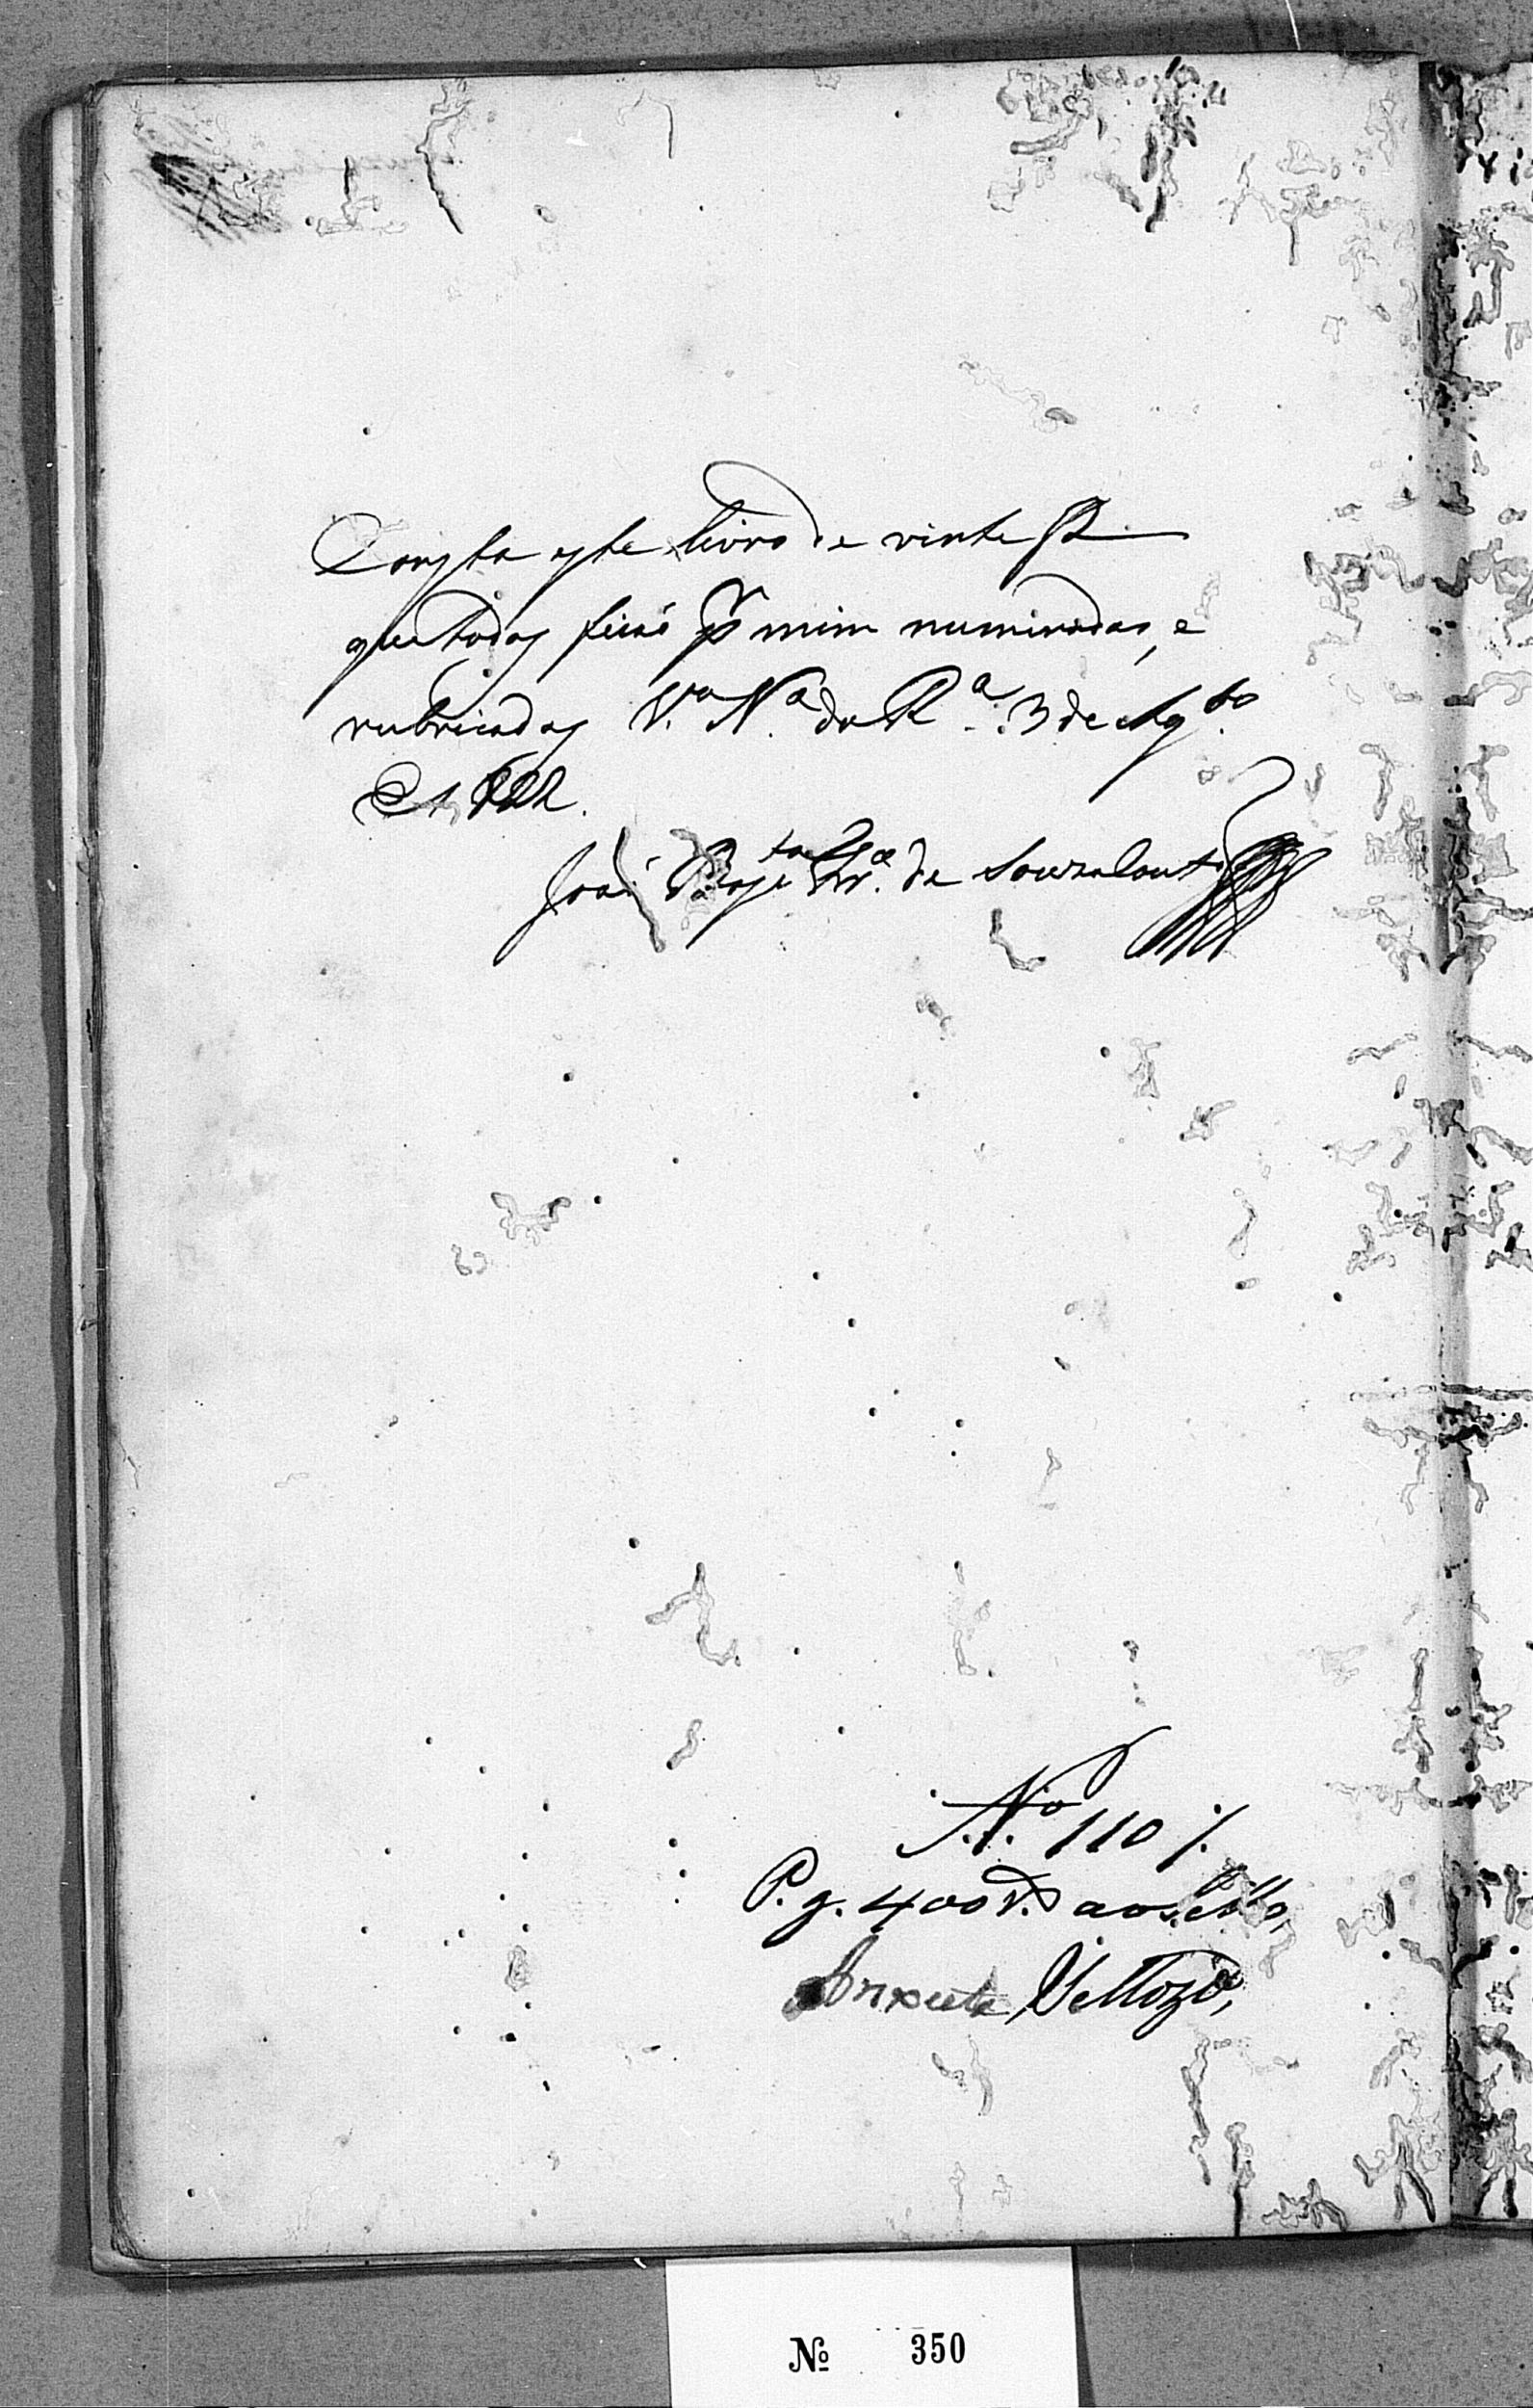 Consta este livro de vinte fl.
que todas ficaõ pr mim numiradas, e
rubricadas V.a N.a da R.a 3 de Ag.to
de 1822.
Joaõ Bap.ta Fr.a de Souza Cout.o
N.o 110
P. g. 400 r.s ao sello,
Vellozo,
No 350